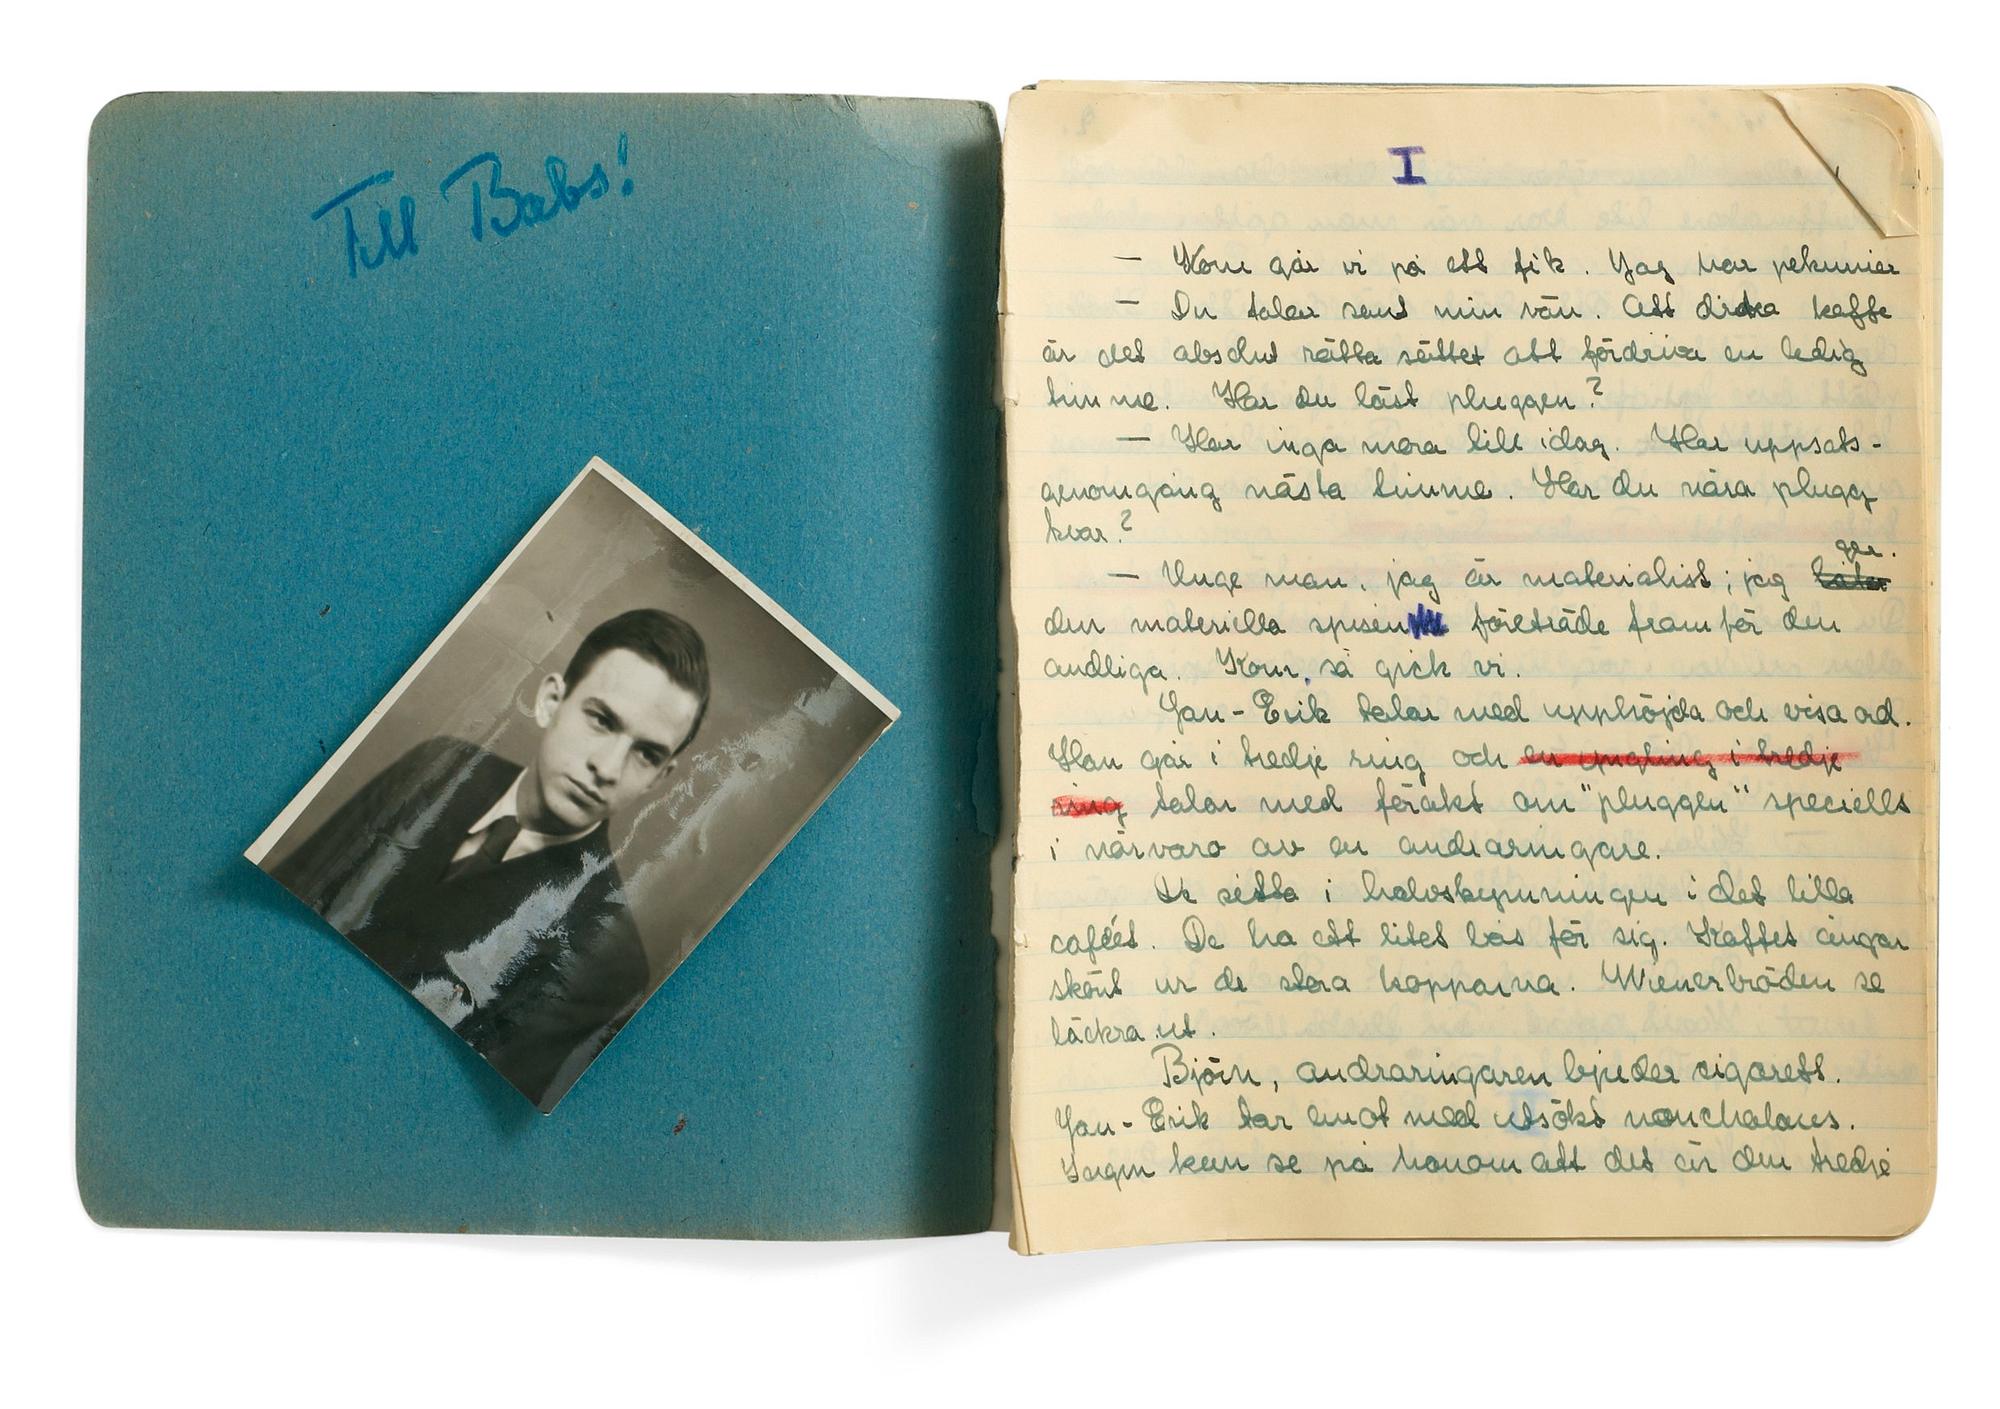 Till Babs!
I
— Kom går vi på ett fik. Jag har pekunier
— Du talar sant min vän. Att dricka kaffe
är det absolut rätta sättet att fördriva en ledig
timme. Har du läst pluggen?
— Har inga mera till idag. Har uppsats-
genomgång nästa timme. Har du nåra plugg
kvar?
— Unge man, jag är materialist; jag låter ger.
den materiella spisen företräde framför den
andliga. Kom, så gick vi.
Jan-Erik talar med upphöjda och visa ord.
Han går i tredje ring och en yngling i tredje
ring talar med förakt om "pluggen" speciellt
i närvaro av en andraringare.
De sitta i halvskymningen i det lilla
caféet. De ha ett litet bås för sig. Kaffet ångar
skönt ur de stora kopparna. Wienerbröden se
läckra ut.
Björn, andraringaren bjuder cigarett.
Jan-Erik tar emot med utsökt nonchalans.
Ingen kan se på honom att det är den tredje